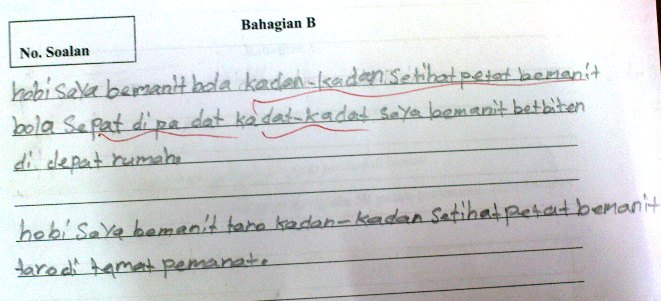 Bahagian B
No. Soalan
hobi saya bemanit bola kadan-kadan setihat petat bemanit
bola sepat di pa dat kadat-kadat saya bemanit betbiten
di depat rumah.
hobi saya bemanit taro kadan-kadan setihat petat bemanit
taro di tamat pemanat.